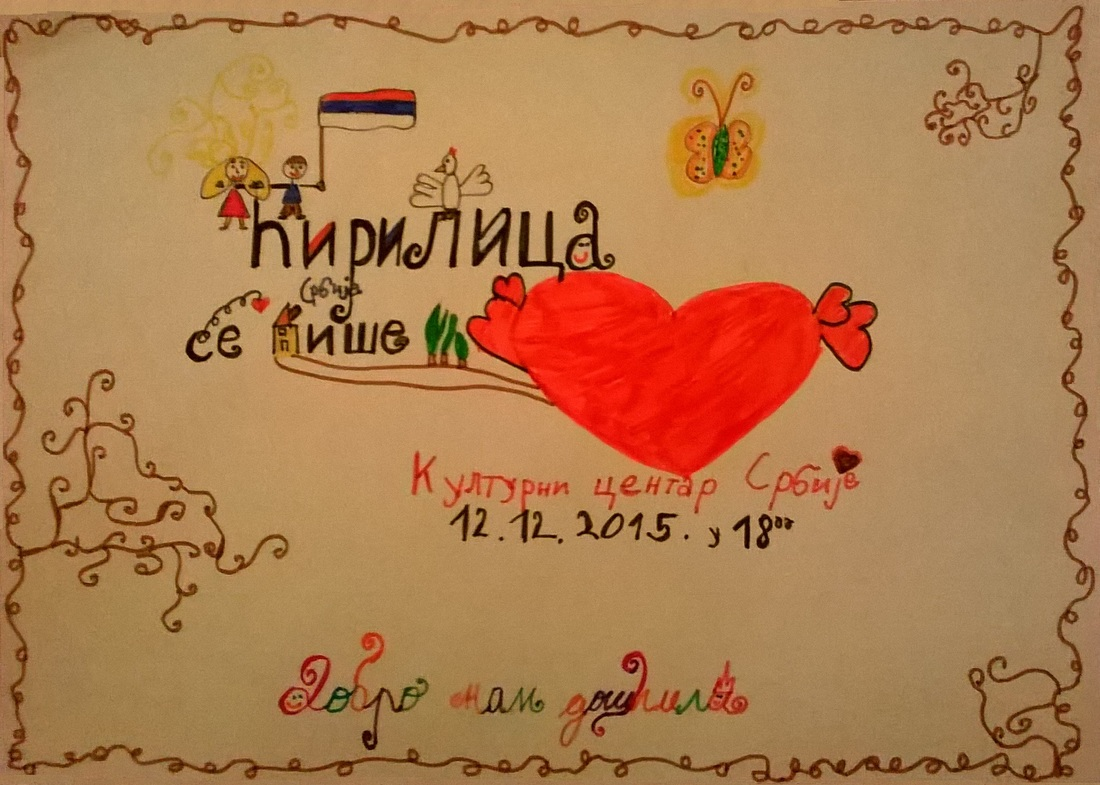 Ћирилица
Србија
се пише
Културни центар Србије
12.12.2015. у 18⁰⁰
Добро нам